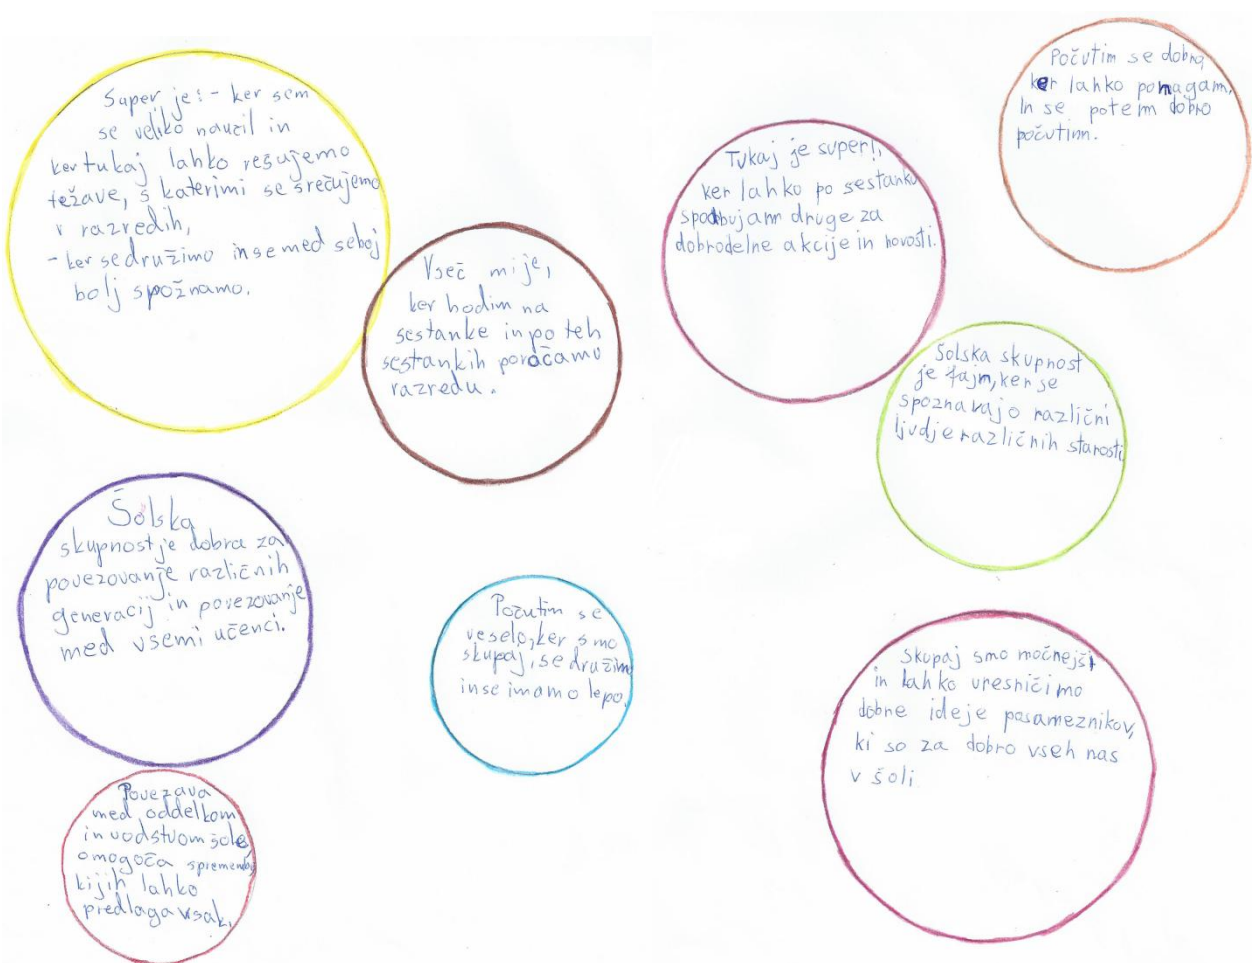 Super je: - ker sem
se veliko naučil in
ker tukaj lahko rešujemo
težave, s katerimi se srečujemo
v razredih,
- ker se družimo in se med seboj
bolj spoznamo.
Všeč mi je,
ker hodim na
sestanke in po teh
sestankih poročamo
razredu.
Šolska
skupnost je dobra za
povezovanje različnih
generacij in povezovanje
med vsemi učenci.
Počutim se
veselo, ker smo
skupaj, se družimo
in se imamo lepo.
Povezava
med oddelkom
in vodstvom šole,
omogoča spremembe,
ki jih lahko
predlaga vsak.
Počutim se dobro,
ker lahko pomagam,
In se potem dobro
počutim.
Tukaj je super!,
ker lahko po sestanku
spodbujam druge za
dobrodelne akcije in novosti.
Šolska skupnost
je fajn, ker se
spoznavajo različni
ljudje različnih starosti.
Skupaj smo močnejši
in lahko uresničimo
dobre ideje posameznikov,
ki so za dobro vseh nas
v šoli.